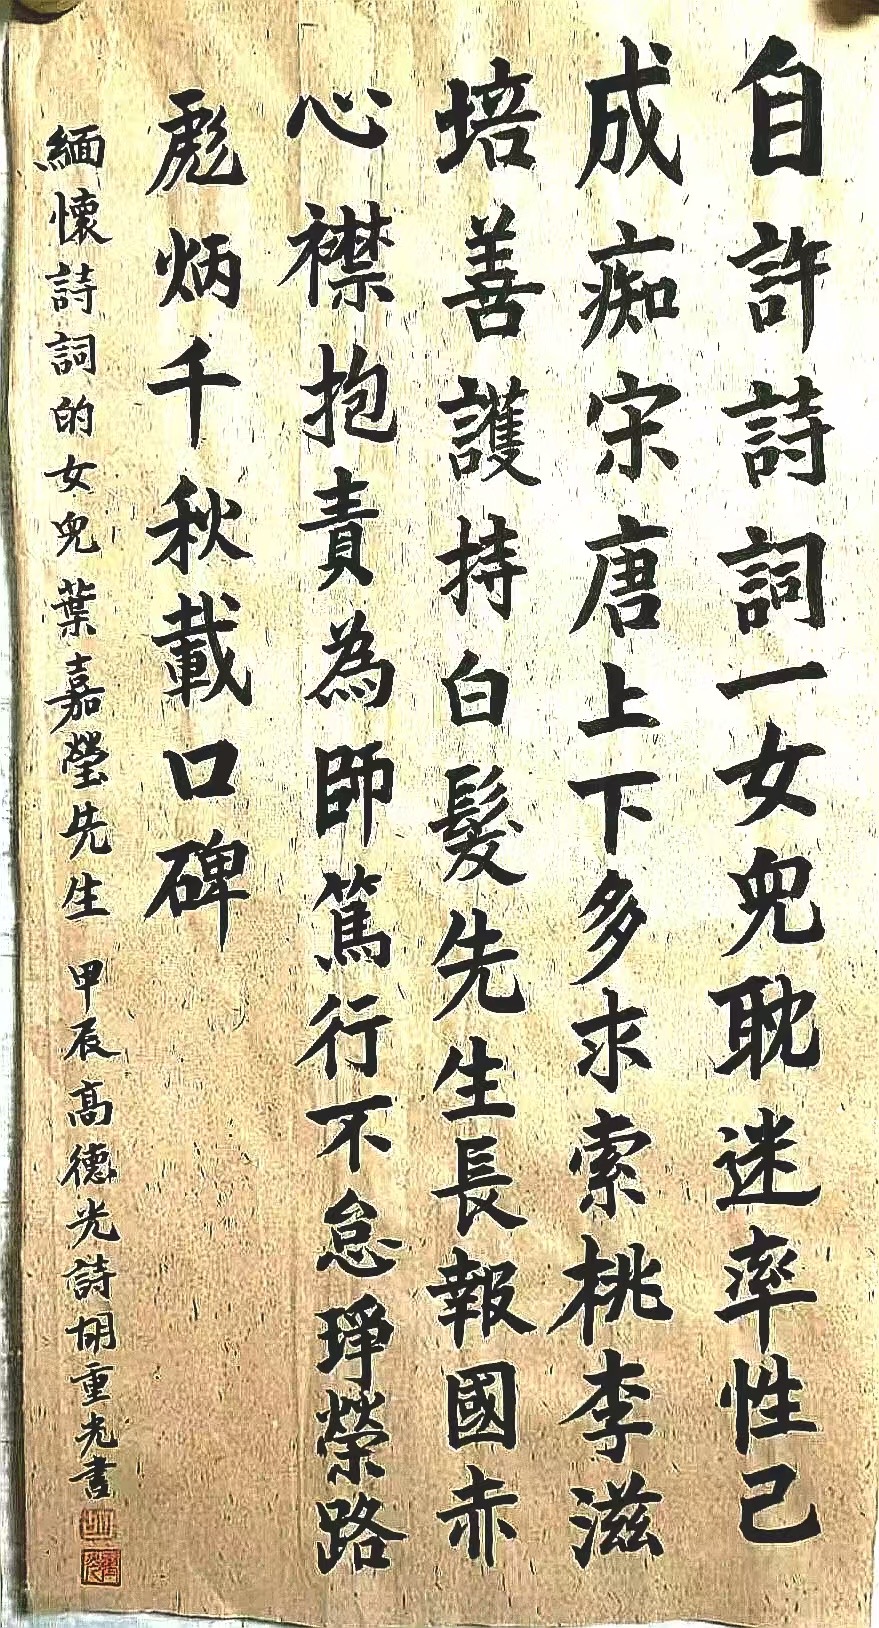 自許詩詞一女兒耽迷率性己
成痴宋唐上下多求索桃李滋
培善護持白髮先生長報國赤
心襟抱責為師篤行不怠琤榮路
彪炳千秋載口碑
緬懷詩詞的女兒葉嘉瑩先生 甲辰高德光詩胡重光書